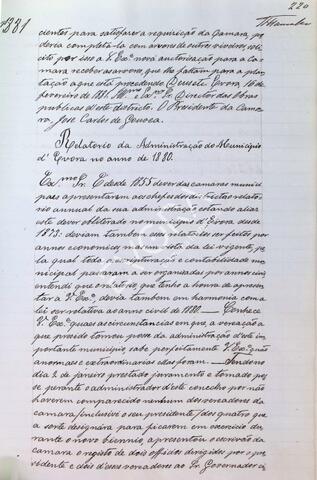 220
1881
cientes para satisfazer a requisição da Camara, po
deria completá-la com arvores de outros viveiros, soli
cito por isso a V. Exª nova autorização para a Ca
mara receber as arvores que lhe faltam para a plan
tação a que está procedendo. Deus etc. Evora, 16 de
fevereiro de 1881. Illmo e Exmo Sr. Director das Obras
publicas d'este districto. O Presidente da Cama
ra, José Carlos de Gouvea.
Relatorio da Administração do Municipio
d'Evora no anno de 1880.
Exmo Sr. É desde 1855 dever das camaras munici
paes apresentarem aos chefes dos districtos relato
rio annual da sua administração estando aliás
este dever obliterado no municipio d'Evora desde
1873: deviam tambem esses relatorios ser feitos por
annos economicos, mas em vista da lei vigente, pe
la qual toda a escripturação e contabilidade mu
nicipal passaram a ser organisadas por annos civis
entendi que o relatorio, que tenho a honra de apresen
tar a V. Exª, devia tambem em harmonia com a
lei ser relativo ao anno civil de 1880. — Conhece
V. Exª quaes as circumstancias em que, a vereação a
que presido tomou posse da administração d'este im
portante municipio, sabe perfeitamente V. Exª quão
anomalas e extraordinarias ellas foram. — Tendo no
dia 2 de janeiro prestado juramento e tomado pos
se perante o administrador d'este concelho por não
haverem comparecido nenhum dos vereadores da
camara /inclusive o seu presidente/ dos quatro que
a sorte designára para ficarem em exercicio du
rante o novo biennio, apresentou o escrivão da
camara o registo de dois officios dirigidos por o pre
sidente e dois d'esses vereadores ao Sr. Governador ci